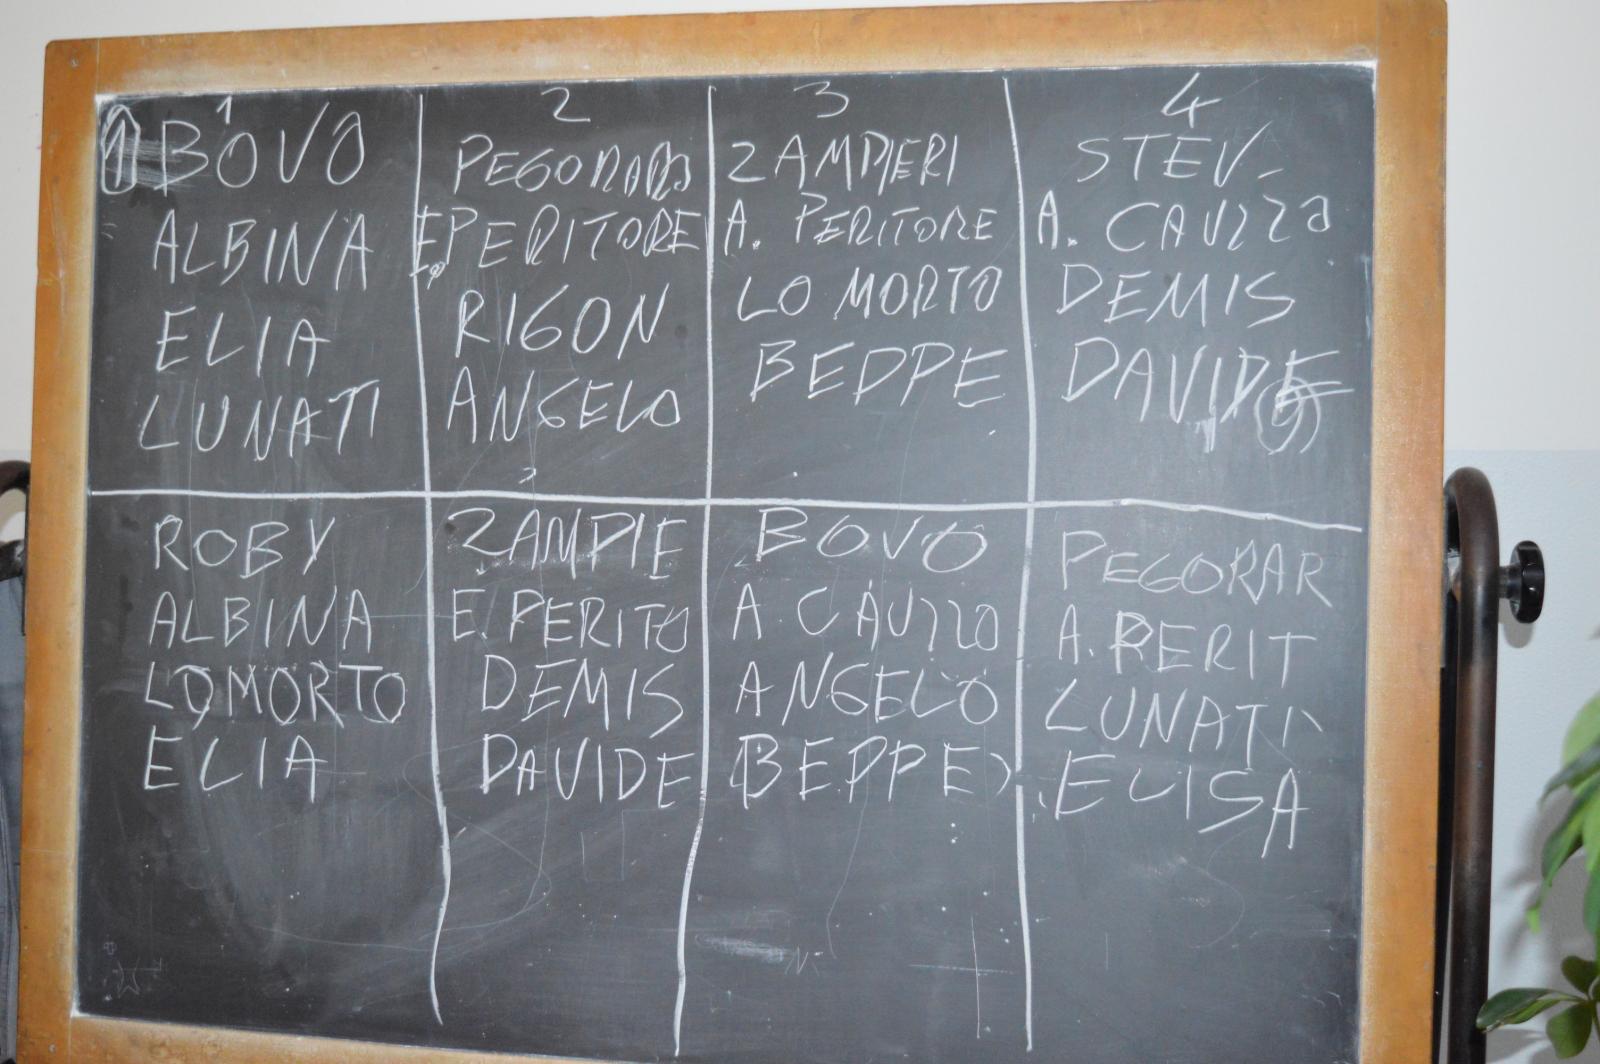 1
BOVO
ALBINA
ELIA
LUNATI
2
PEGORARO
E. PERITORE
RIGON
ANGELO
3
ZAMPIERI
A. PERITORE
LO MORTO
BEPPE
4
STEV-
A. CAUZZO
DEMIS
DAVIDE
ROBY
ALBINA
LOMORTO
ELIA
ZAMPIE
E. PERITO
DEMIS
DAVIDE
BOVO
A. CAUZZO
ANGELO
(BEPPE)
PEGORAR
A. PERIT
LUNATI
ELISA